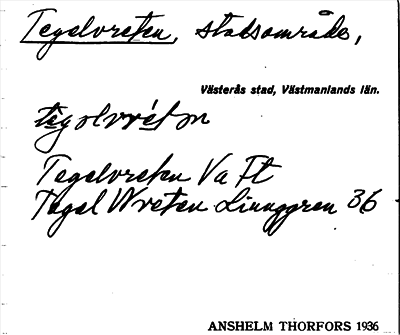 Tegelvreten, stadsområde,
Västerås stad, Västmanlands län.
tegolvréton
Tegelvreten Va Ft
Tegel Wreten Linnggren 36
ANSHELM THORFORS 1936